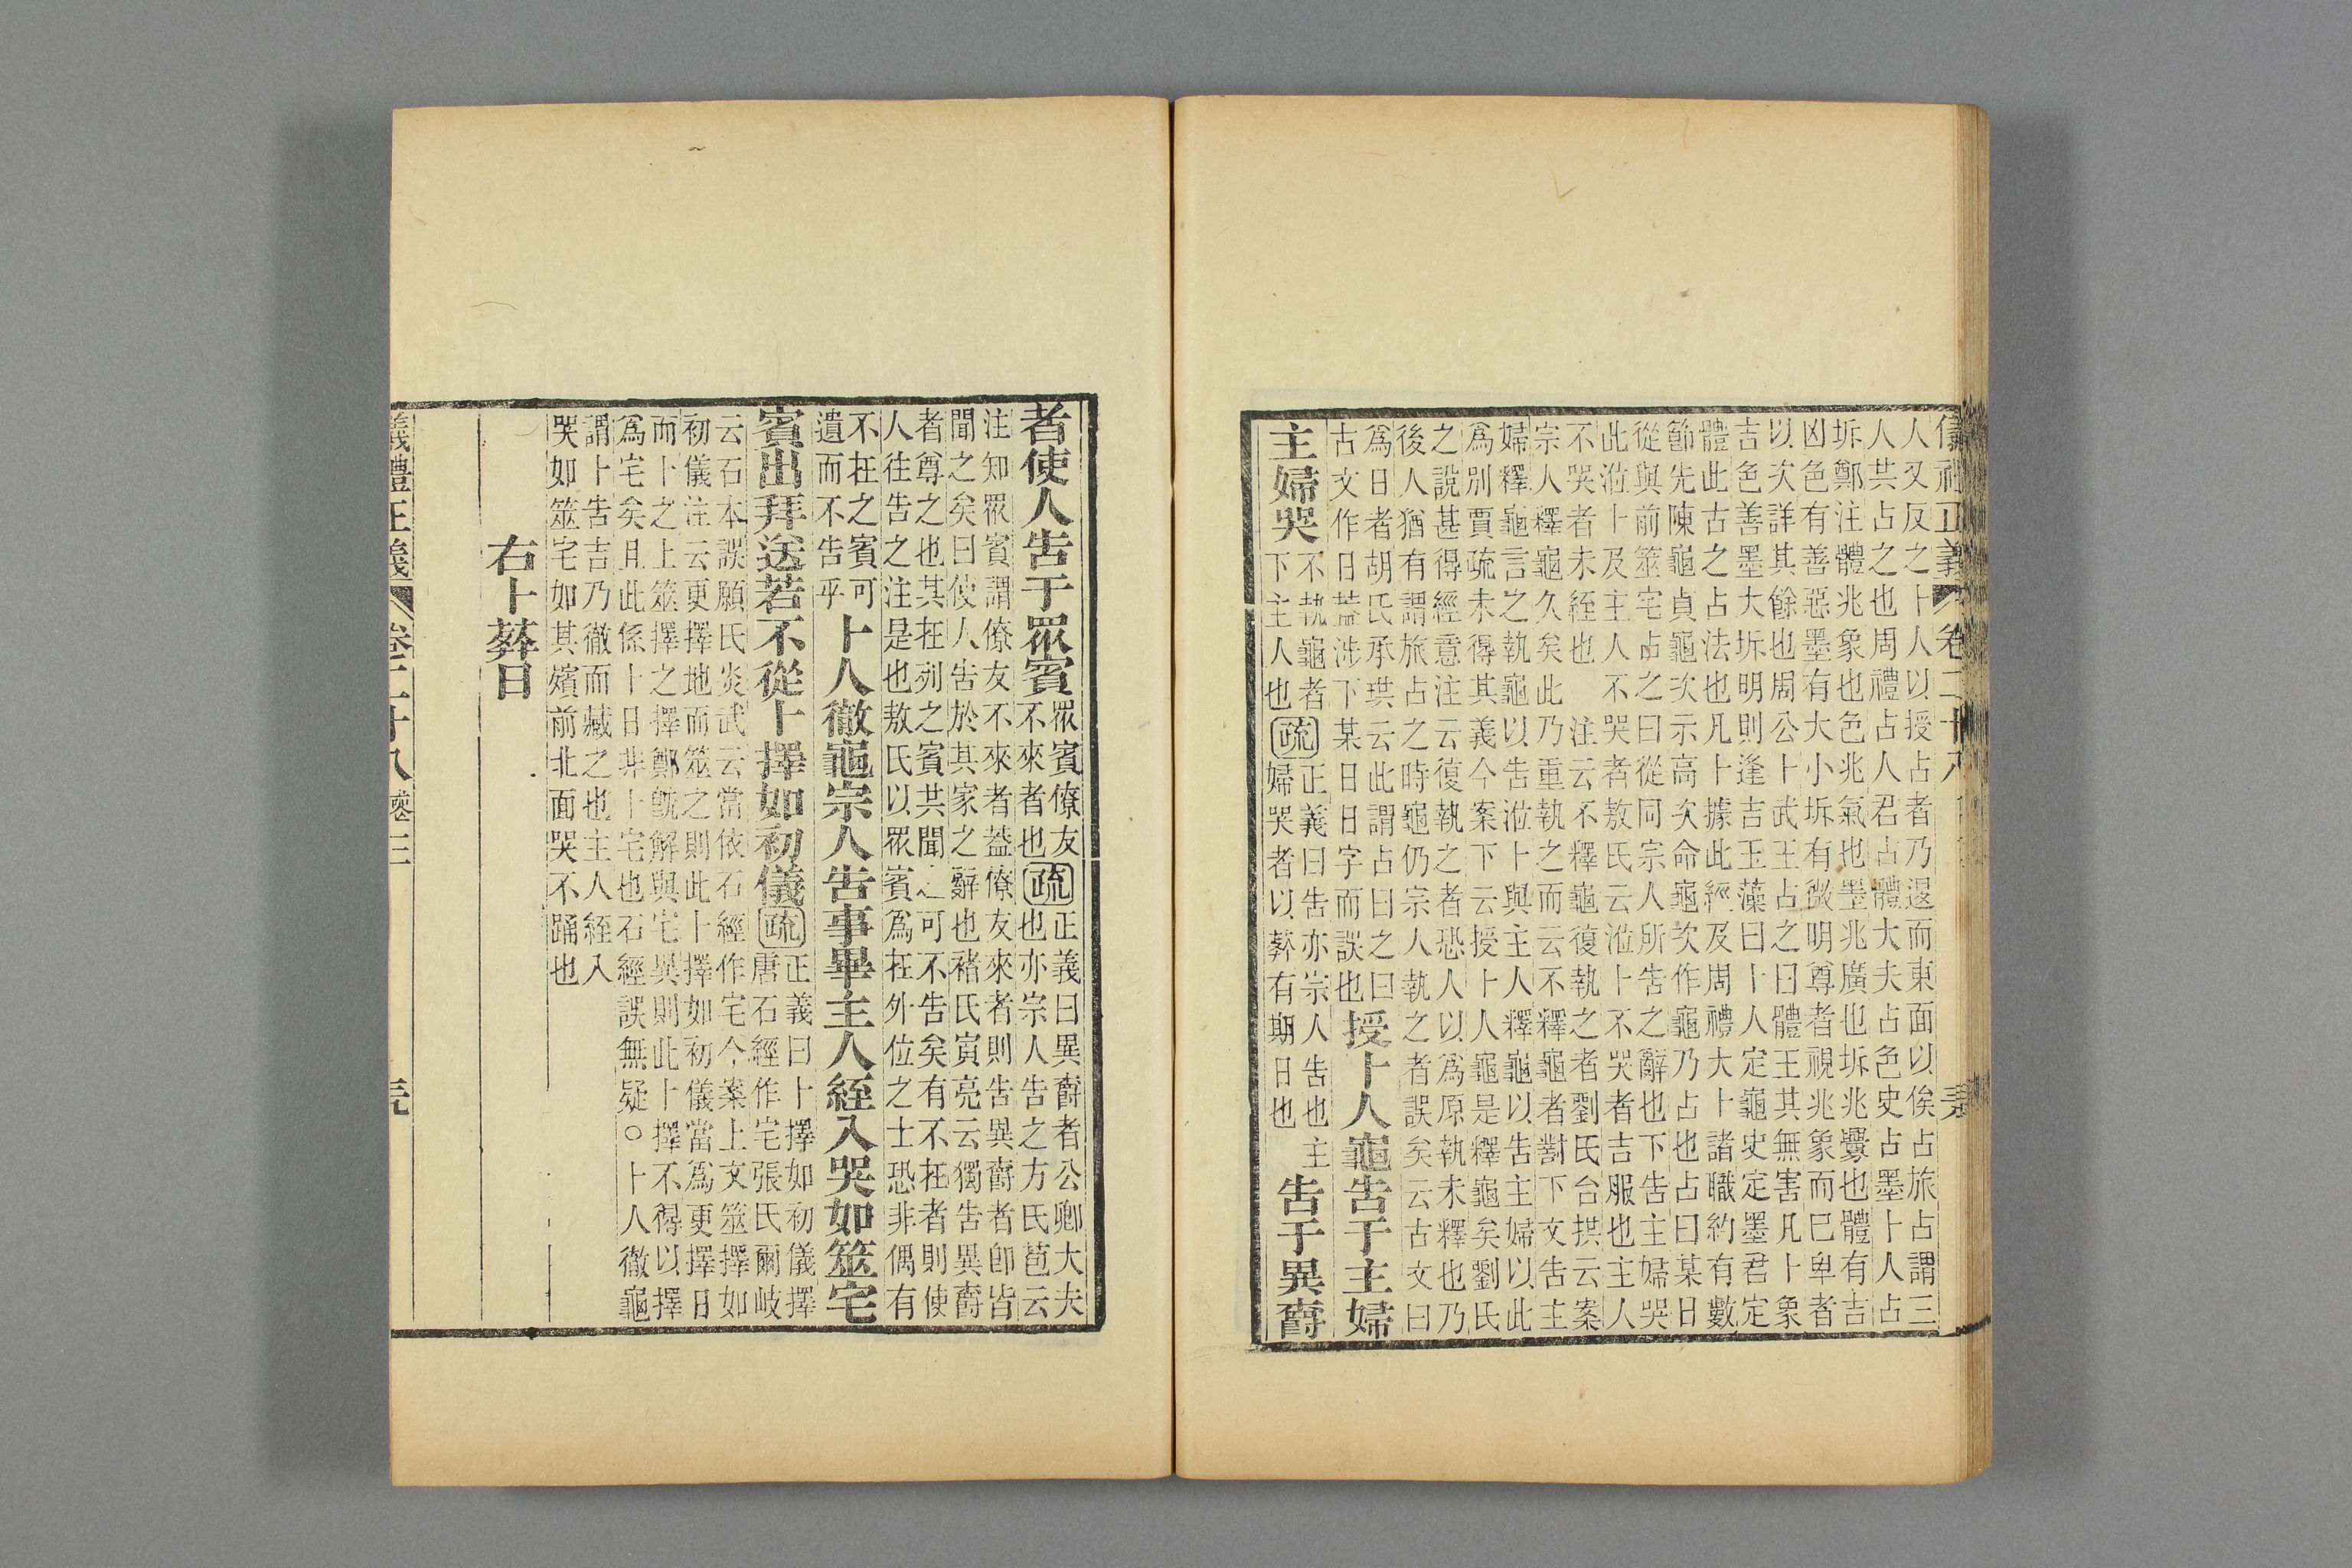 儀禮正義 卷二十八
人又反之卜人以授占者乃退而東面以俟占旅占謂三
人共占之也周禮占人君占體大夫占色史占墨卜人占
坼鄭注體兆象也色兆氣也墨兆廣也坼兆舋也體有吉
凶色有善惡墨有大小坼有微明尊者視兆象而已卑者
以次詳其餘也周公卜武王占之曰體王其無害凡卜象
吉色善墨大坼明則逢吉玉藻曰卜人定龜史定墨君定
體此古之占法也凡卜據此經及周禮大卜諸職約有數
節先陳龜貞龜次示高次命龜次作龜乃占也占曰某日
從與前筮宅占之曰從同宗人所告之辭也下告主婦哭
此涖卜及主人不哭者敖氏云涖卜不哭者吉服也主人
不哭者未絰也 注云不釋龜復執之者劉氏台拱云案
宗人釋龜久矣此乃重執之而云不釋龜者對下文告主
婦釋龜言之執龜以告涖卜與主人釋龜以告主婦以此
爲別賈疏未得其義今案下云授卜人龜是釋龜矣劉氏
之說甚得經意注云復執之者恐人以爲原執未釋也乃
後人猶有謂旅占之時龜仍宗人執之者誤矣云古文曰
爲日者胡氏承珙云此謂占曰之曰
古文作日葢涉下某日日字而誤也
授卜人龜告于主婦
主婦哭
不執龜者
下主人也
疏
正義曰告亦宗人告也主
婦哭者以葬有期日也
告于異爵
者使人告于眾賓
眾賓僚友
不來者也
疏
正義曰異爵者公卿大夫
也亦宗人告之方氏苞云
注知眾賓謂僚友不來者葢僚友來者則告異爵者卽皆
聞之矣曰使人告於其家之辭也褚氏寅亮云獨告異爵
者尊之也其在列之賓共聞之可不告矣有不在者則使
人往告之注是也敖氏以眾賓爲在外位之士恐非偶有
不在之賓可
遺而不告乎
卜人徹龜宗人告事畢主人絰入哭如筮宅
賓出拜送若不從卜擇如初儀
疏
正義曰卜擇如初儀擇
唐石經作宅張氏爾岐
云石本誤顧氏炎武云當依石經作宅今案上文筮擇如
初儀注云更擇地而筮之則此卜擇如初儀當爲更擇日
而卜之上筮擇之擇鄭旣解與宅異則此卜擇不得以擇
爲宅矣且此係卜日非卜宅也石經誤無疑○卜人徹龜
謂卜告吉乃徹而藏之也主人絰入
哭如筮宅如其殯前北面哭不踊也
右卜葬日
儀禮正義 卷二十八 喪三